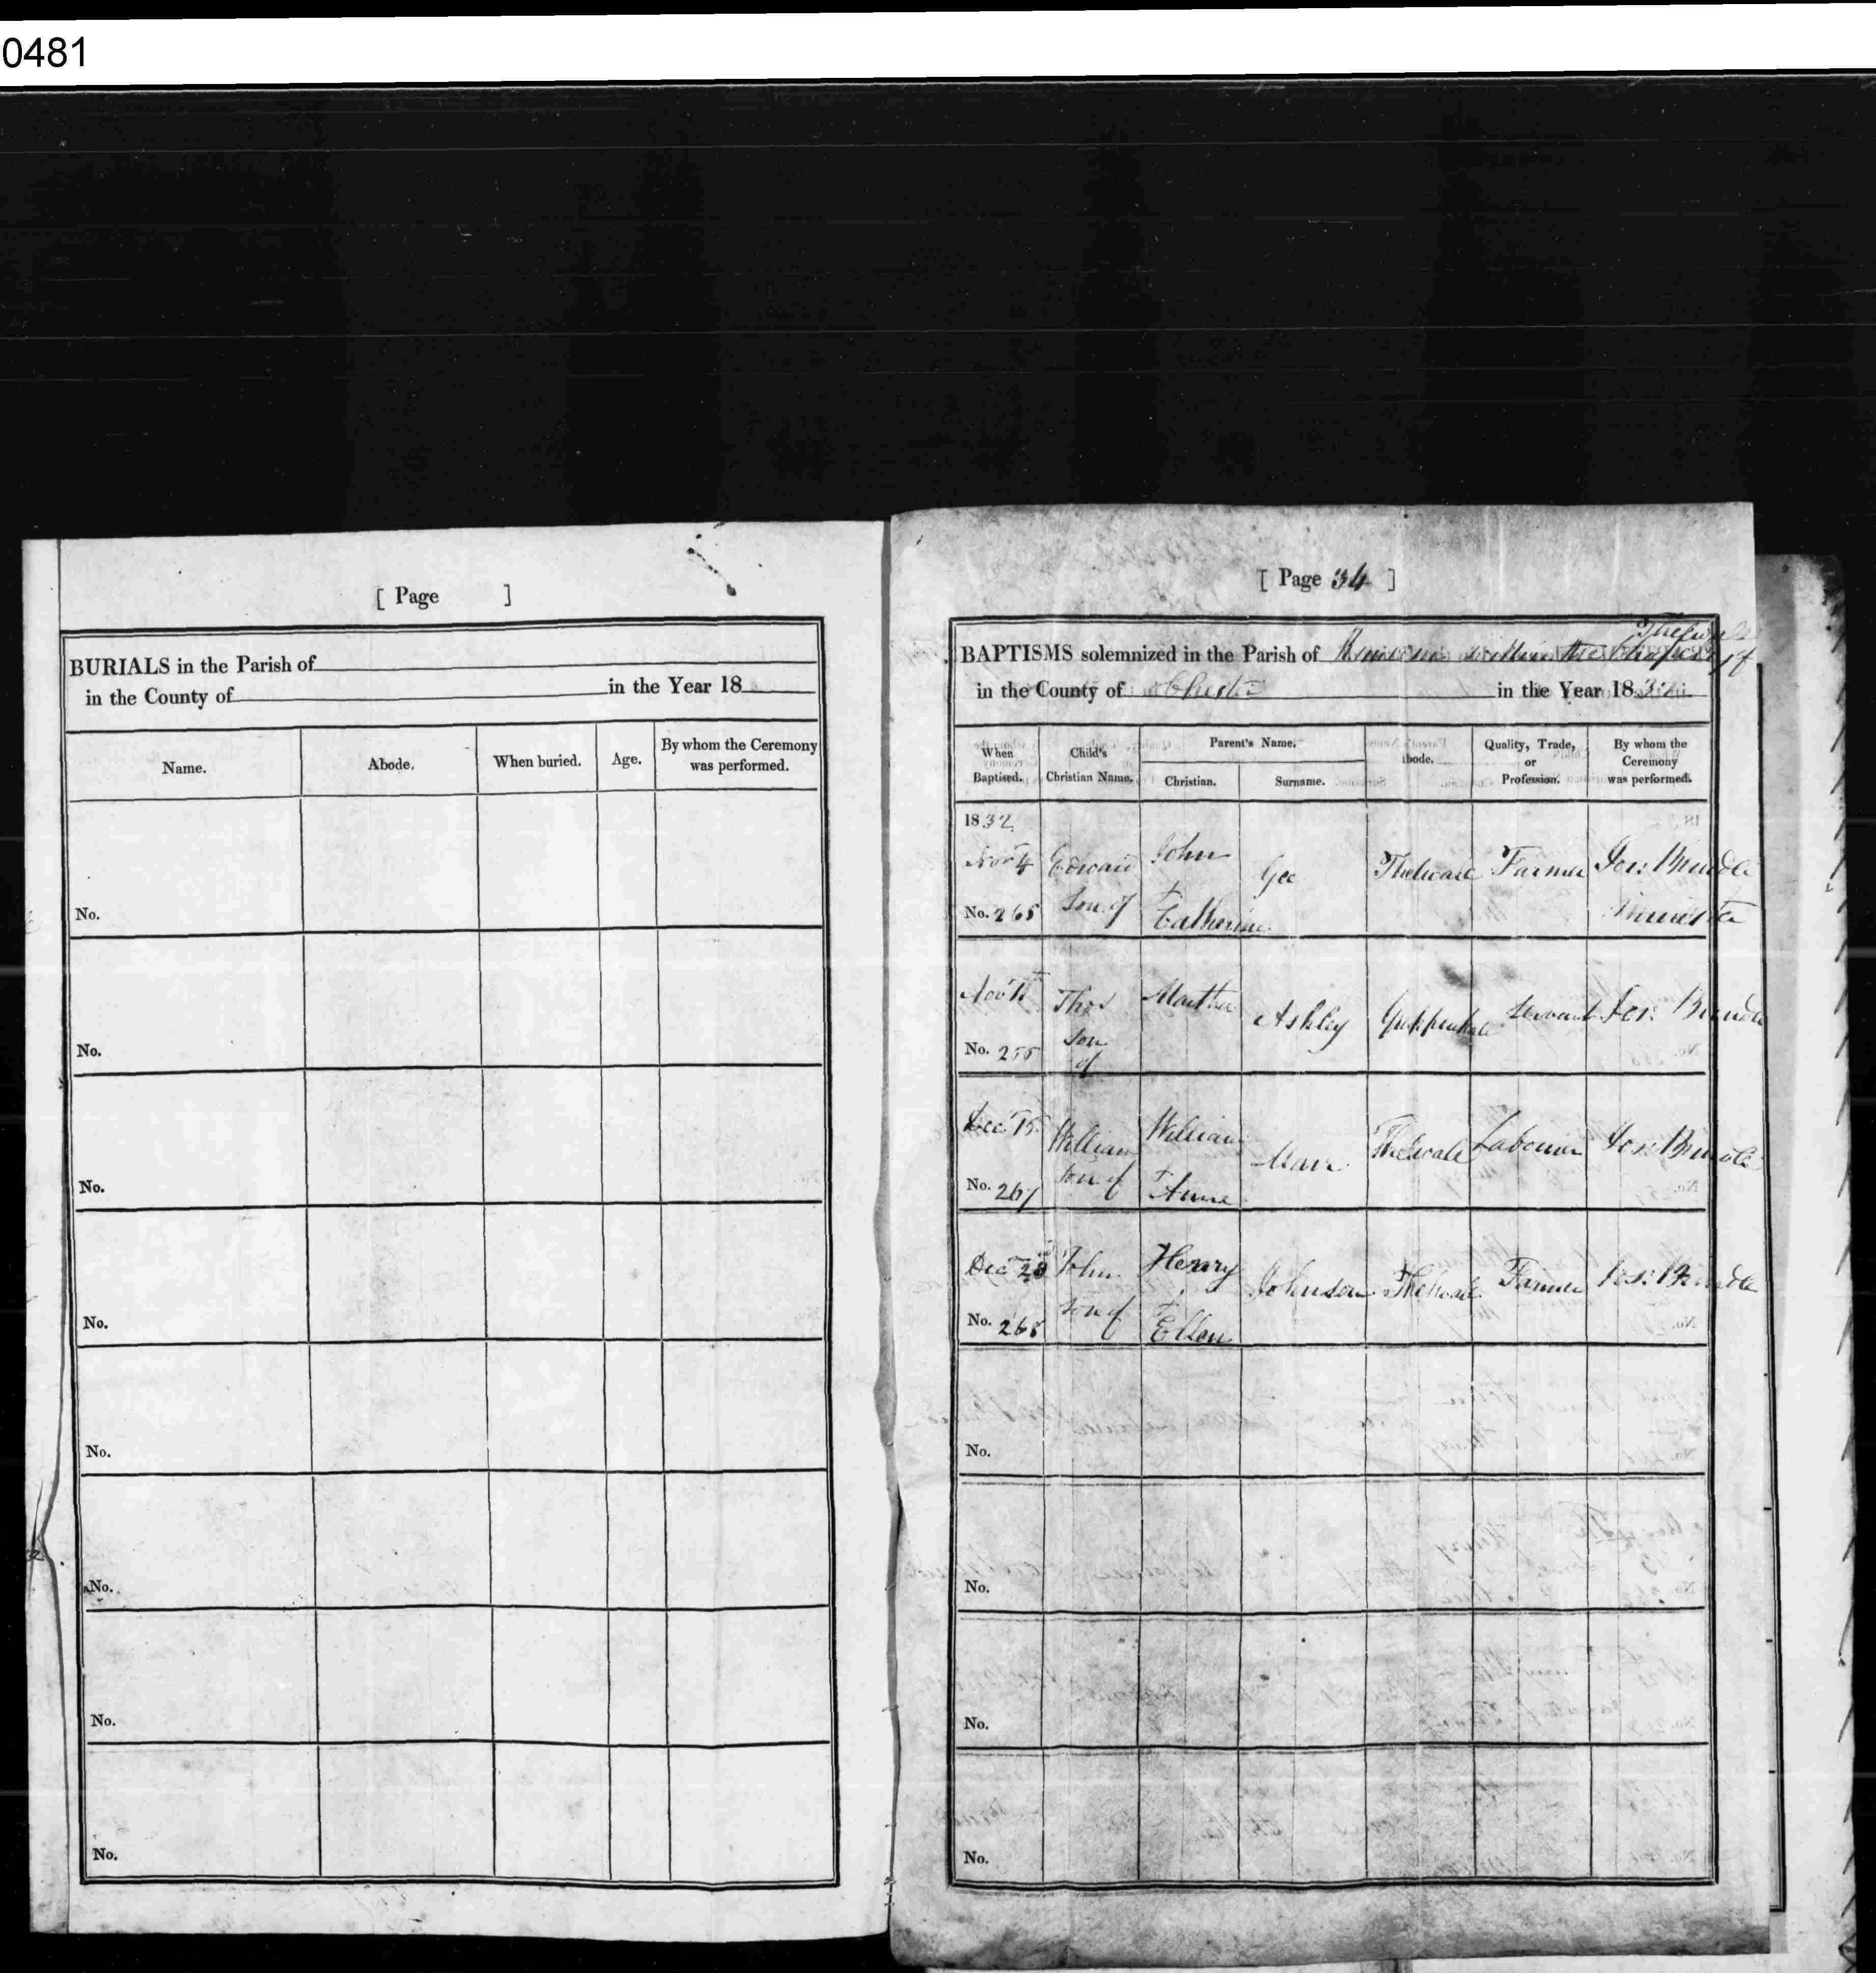 0481
[ Page ]
BURIALS in the Parish of
in the County of in the Year 18
Name. Abode. When buried. Age. By whom the Ceremony
was performed.
No.
No.
No.
No.
No.
No.
No.
No.
[ Page 34 ]
Thelwall
BAPTISMS solemnized in the Parish of within the Chapelry of
in the County of Chester in the Year 1832
When Child's Parent's Name. Abode. Quality, Trade, By whom the
or Ceremony
Baptised. Christian Name. Christian. Surname. Profession. was performed.
1832
Nov 4 Edward John Gee Thelwall Farmer Jos: Brindle
No. 265 Son of & Catherine Minister
Nov Thos Martha Ashley Servant Jos: Brindle
No. son
of
Dec 15 William William Thelwall Labourer Jos: Brindle
No. 267 son of & Anne
Dec 23 John Henry Johnson Thelwall Farmer Jos: Brindle
No. 268 son of & Ellen
No.
No.
No.
No.